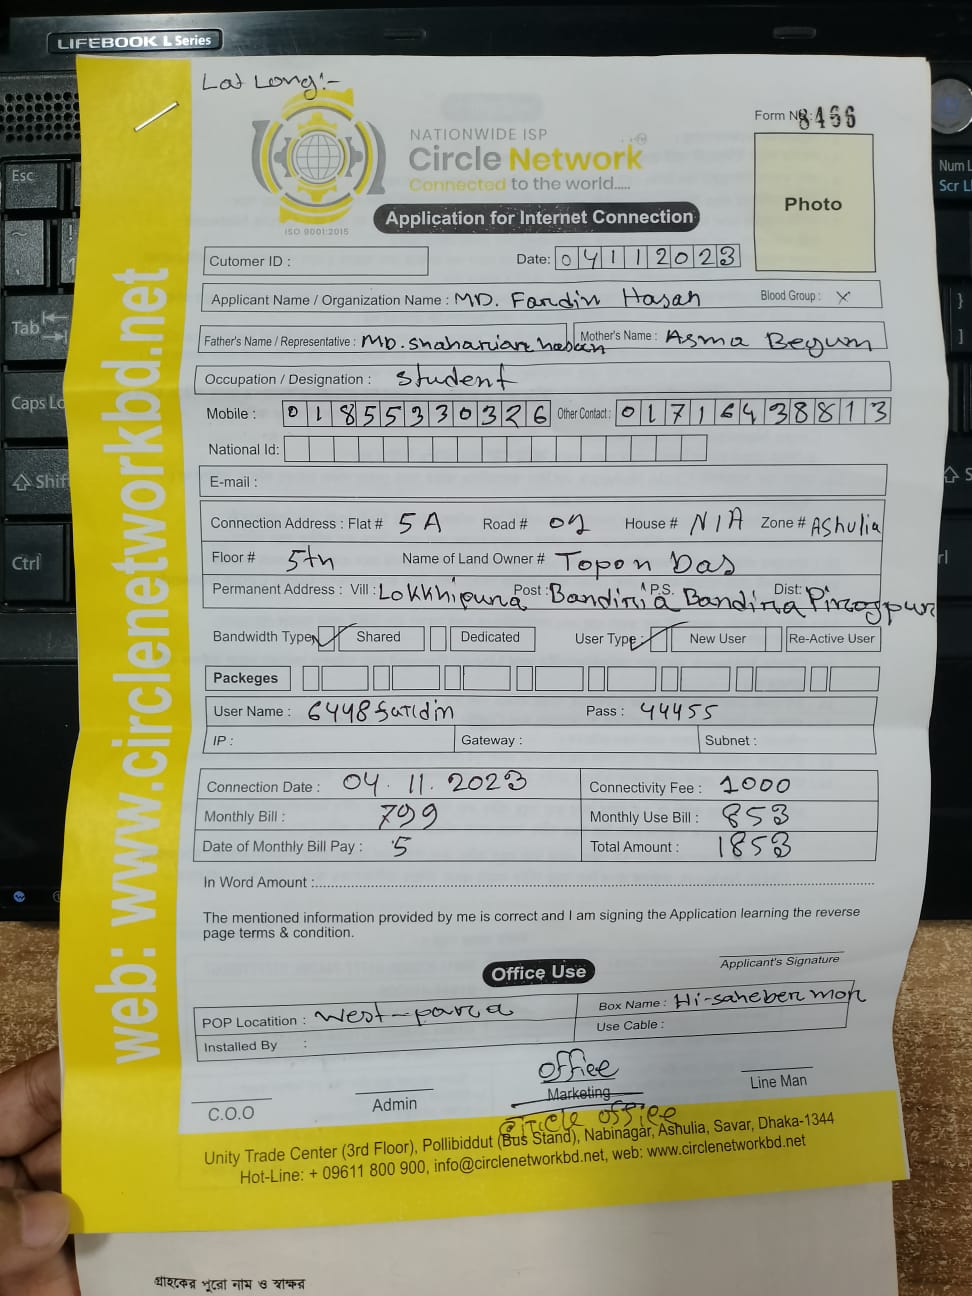 LIFEBOOK L Series
Lat Long:-
Form No: 8466
NATIONWIDE ISP
Circle Network
Connected to the world.....
ISO 9001:2015
Application for Internet Connection
Photo
Cutomer ID :
Date: 04112023
Applicant Name / Organization Name : MD. Fardin Hasan Blood Group : X
Father's Name / Representative : MD. Shahariar hasan Mother's Name : Asma Begum
Occupation / Designation : Student
Mobile : 01855330326 Other Contact : 01716438813
National Id:
E-mail :
Connection Address : Flat # 5A Road # 02 House # N/A Zone # Ashulia
Floor # 5th Name of Land Owner # Topon Das
Permanent Address : Vill : Lokkhipura Post : P.S. Dist:
Bandwidth Type: Shared Dedicated User Type: New User Re-Active User
Packeges
User Name : 6448fardin Pass : 44455
IP : Gateway : Subnet :
Connection Date : 04.11.2023 Connectivity Fee : 1000
Monthly Bill : 799 Monthly Use Bill : 853
Date of Monthly Bill Pay : 5 Total Amount : 1853
In Word Amount :
The mentioned information provided by me is correct and I am signing the Application learning the reverse
page terms & condition.
Applicant's Signature
Office Use
POP Locatition : West-para Box Name : Hi-saheber mor
Installed By : Use Cable :
office
C.O.O Admin Marketing Line Man
Circle office
Unity Trade Center (3rd Floor), Pollibiddut (Bus Stand), Nabinagar, Ashulia, Savar, Dhaka-1344
Hot-Line: + 09611 800 900, info@circlenetworkbd.net, web: www.circlenetworkbd.net
web: www.circlenetworkbd.net
গ্রাহকের পুরো নাম ও স্বাক্ষর
Esc
Tab
Caps Lo
Shif
Ctrl
Num L
Scr L